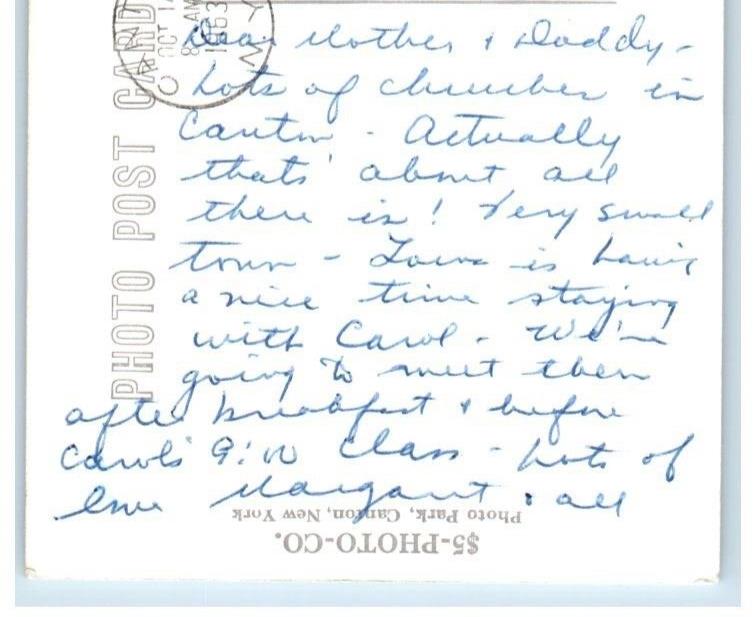 CANTON
OCT 14
8 AM
1953
N.Y.
PHOTO POST CARD
Dear Mother & Daddy -
Lots of churches in
Canton - Actually
thats about all
there is! Very small
town - is having
a nice time staying
with Carol - We're
going to meet them
after breakfast & before
Carols 9:00 class - Lots of
love Margaret & all
Photo Park, Canton, New York
$5-PHOTO-CO.